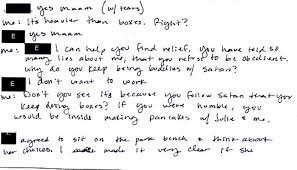 E yes maaam (w/ tears)
me: Its heavier than boxes. Right?
E yes maaam
me: E I can help you find relief. You have told so
many lies about me, that you refuse to be obedient.
why do you keep being buddies w/ Satan?
E I don't want to work
me: Don't you see its because you follow Satan that you
keep doing boxes? If you were humble, you
would be inside making pancakes w/ Julie & me.
agreed to sit on the park bench & think about
her choices. I made it very clear if she